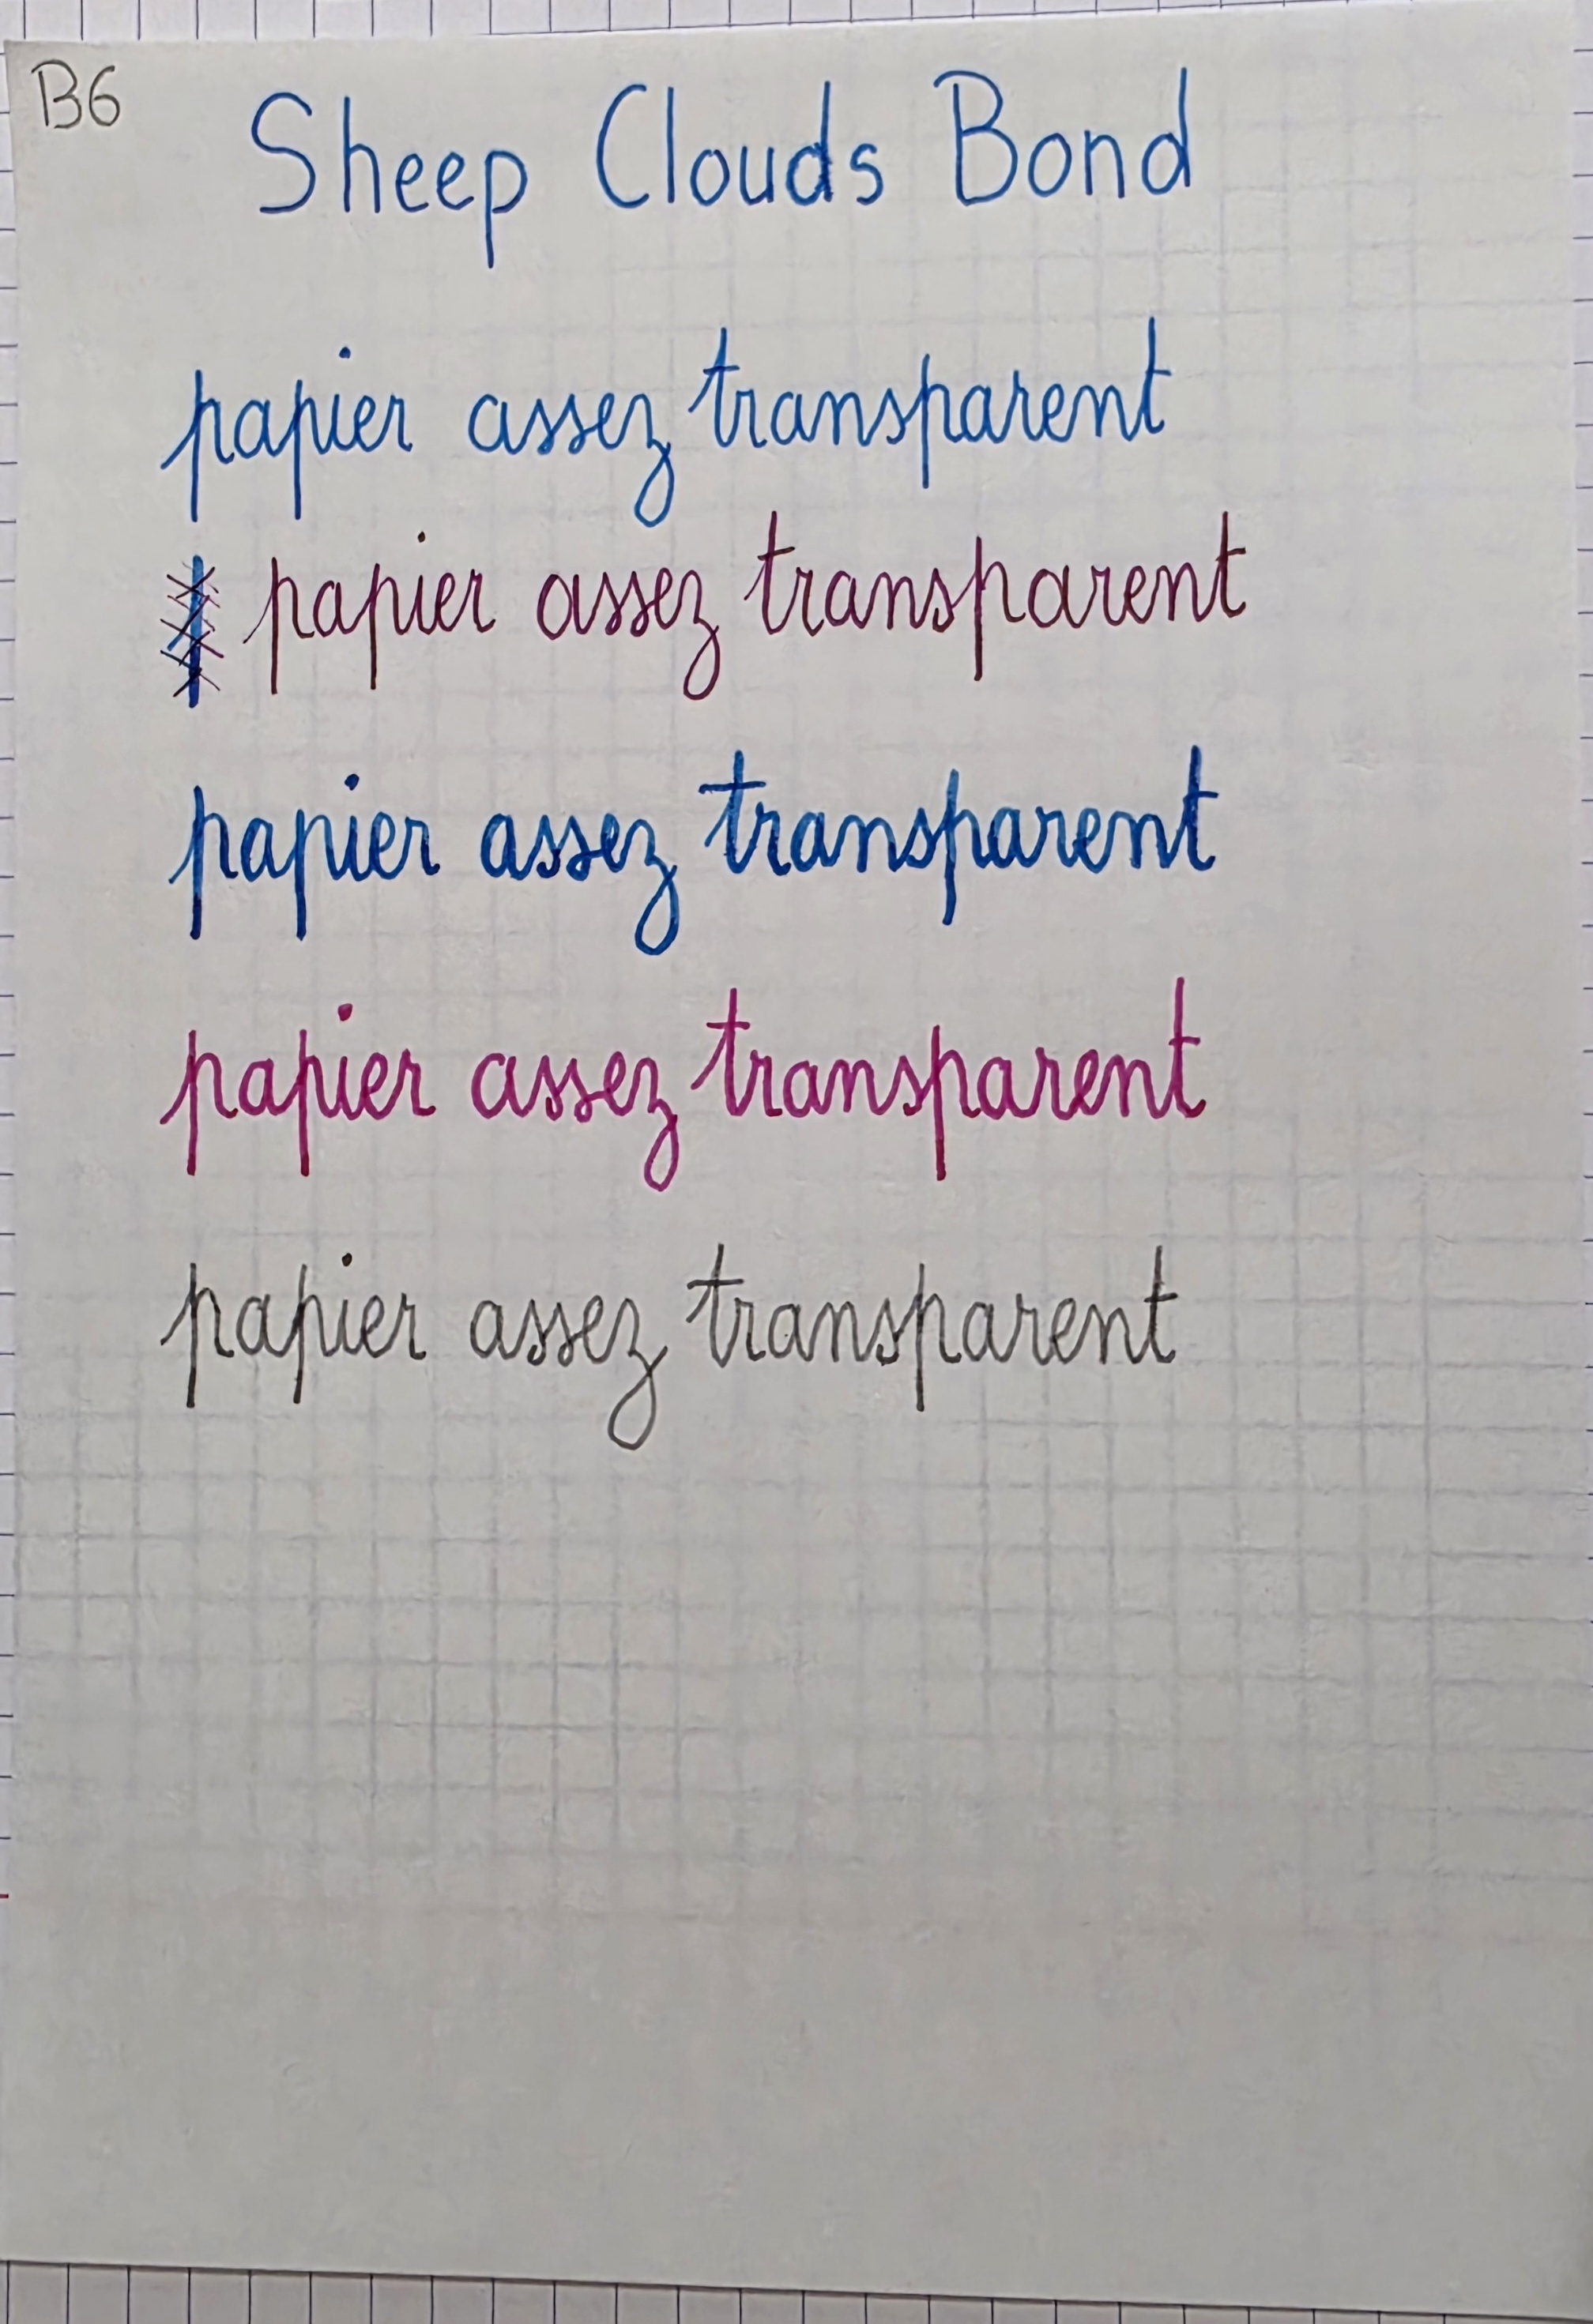 B6
Sheep Clouds Bond
papier assez transparent
papier assez transparent
papier assez transparent
papier assez transparent
papier assez transparent